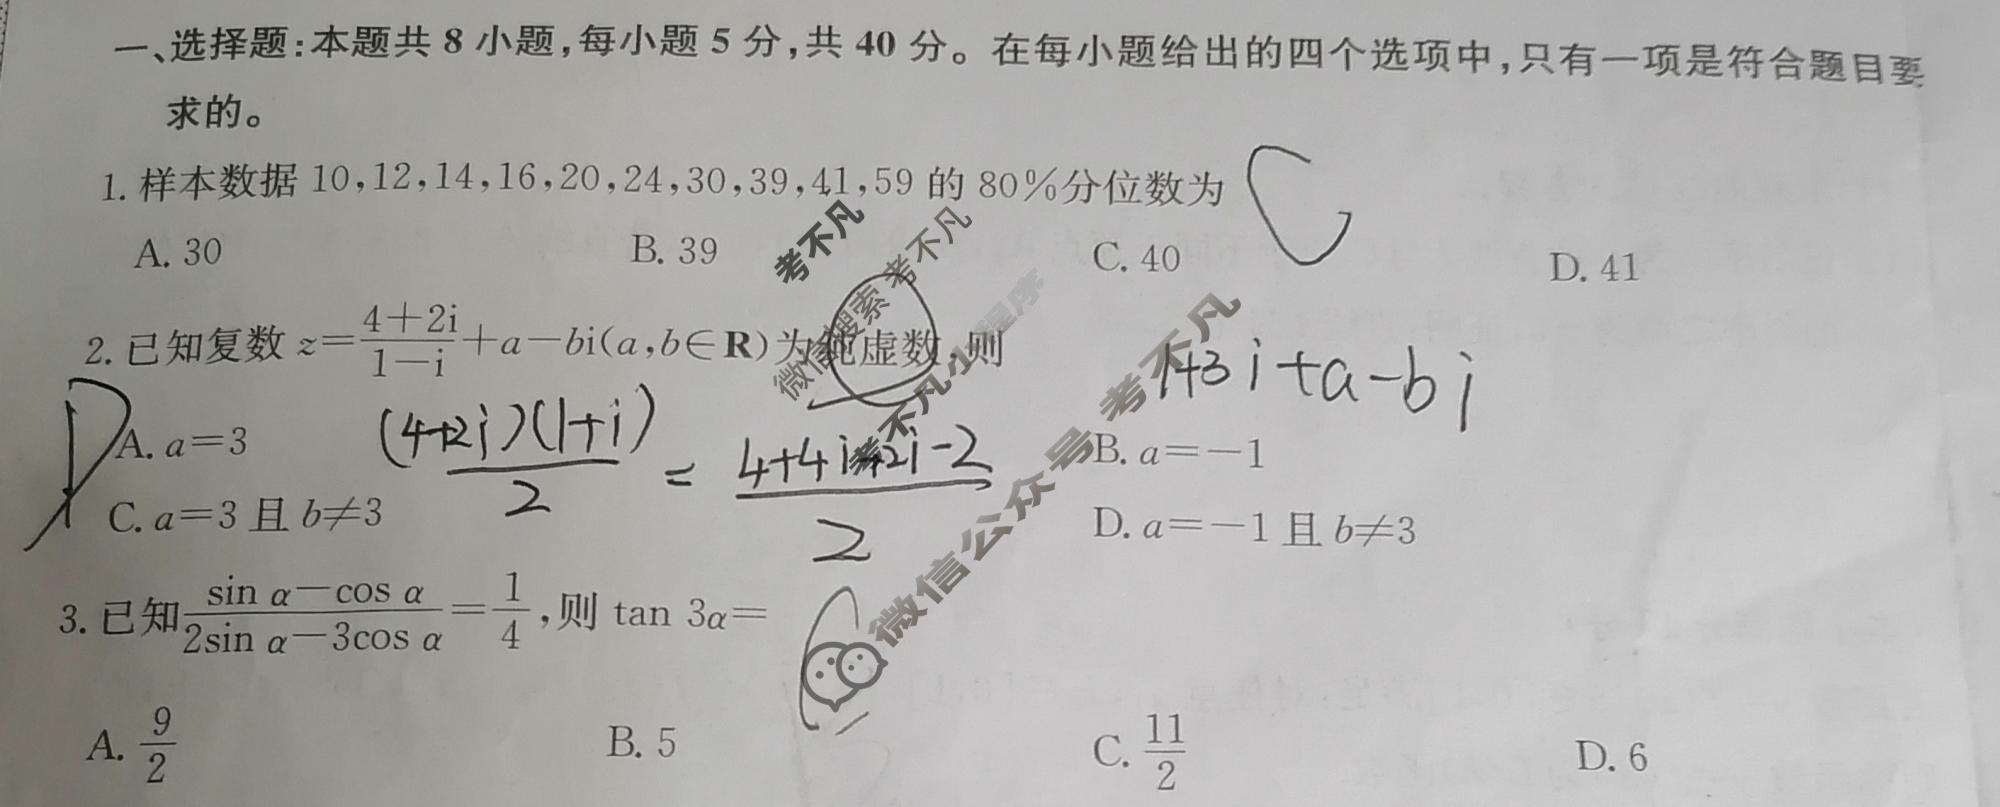 一、选择题:本题共 8 小题,每小题 5 分,共 40 分。在每小题给出的四个选项中,只有一项是符合题目要
求的。
1. 样本数据 10,12,14,16,20,24,30,39,41,59 的 80%分位数为 C
A. 30 B. 39 C. 40 D. 41
2. 已知复数 z=\frac{4+2i}{1-i}+a-bi(a,b∈R)为纯虚数,则
1+3i+a-bi
D
A. a=3 B. a=-1
\frac{(4+2i)(1+i)}{2} = \frac{4+4i+2i-2}{2}
C. a=3 且 b≠3 D. a=-1 且 b≠3
3. 已知\frac{sin α-cos α}{2sin α-3cos α}=\frac{1}{4},则 tan 3α= C
A. \frac{9}{2} B. 5 C. \frac{11}{2} D. 6
考不凡
微信搜索 考不凡
考不凡小程序
微信公众号 考不凡